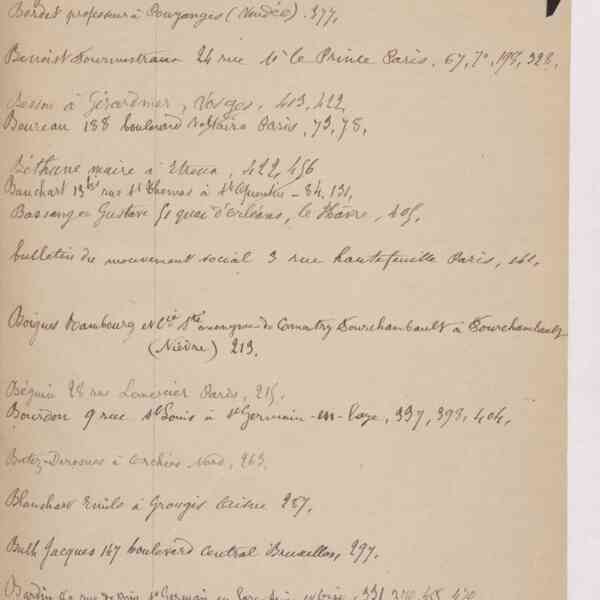 Bordet professeur à Pouzauges (Vendée). 377.
Benoist 24 rue Mr le Prince Paris. 67, 70, 198, 328.
Besson à Gérardmer, Vosges, 413, 422,
Boureau 188 boulevard Voltaire Paris, 73, 78,
Béthune maire à 422, 456
Bauchart 13 bis rue St Thomas à St Quentin - 84, 131,
Gustave 51 quai d'Orléans, le Hâvre, 405,
bulletin du mouvement social 3 rue hautefeuille Paris, 161,
Boigues Rambourg et Cie Sté anonyme de Comentry Fourchambault à Fourchambault
(Nièvre) 213.
Béguin 28 rue Lemercier Paris, 215.
Bourdon 9 rue St Louis à St Germain-en-Laye, 337, 398, 404,
à Orchies Nord, 263.
Blanchart Emile à Grougis Aisne 287,
Bulh Jacques 167 boulevard Central Bruxelles, 297.
Bardin rue de St Germain en Laye